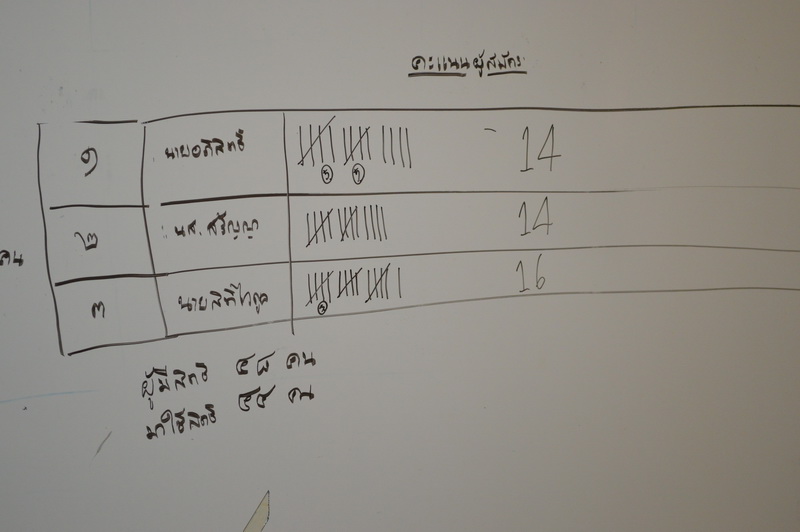 คะแนนผู้สมัคร
๑ นายอภิสิทธิ์ 14
๒ นส. สรัญญา 14
คน
๓ 16
ผู้มีสิทธิ ๕๘ คน
มาใช้สิทธิ ๔๔ คน